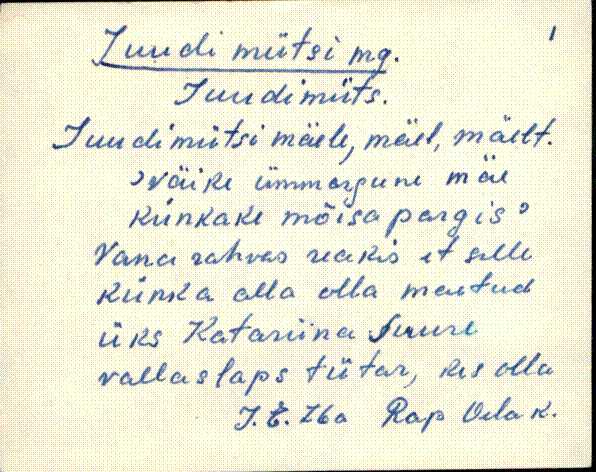 1
Juudi mütsi mg.
Juudimüts.
Juudimütsi mäele, mäel, mäelt.
›väike ümmargune mäe
künkake mõisa pargis›
Vana rahvas reakis et selle
künka alla olla maetud
üks Katariina Suure
vallaslaps tütar, kes olla
Rap k.